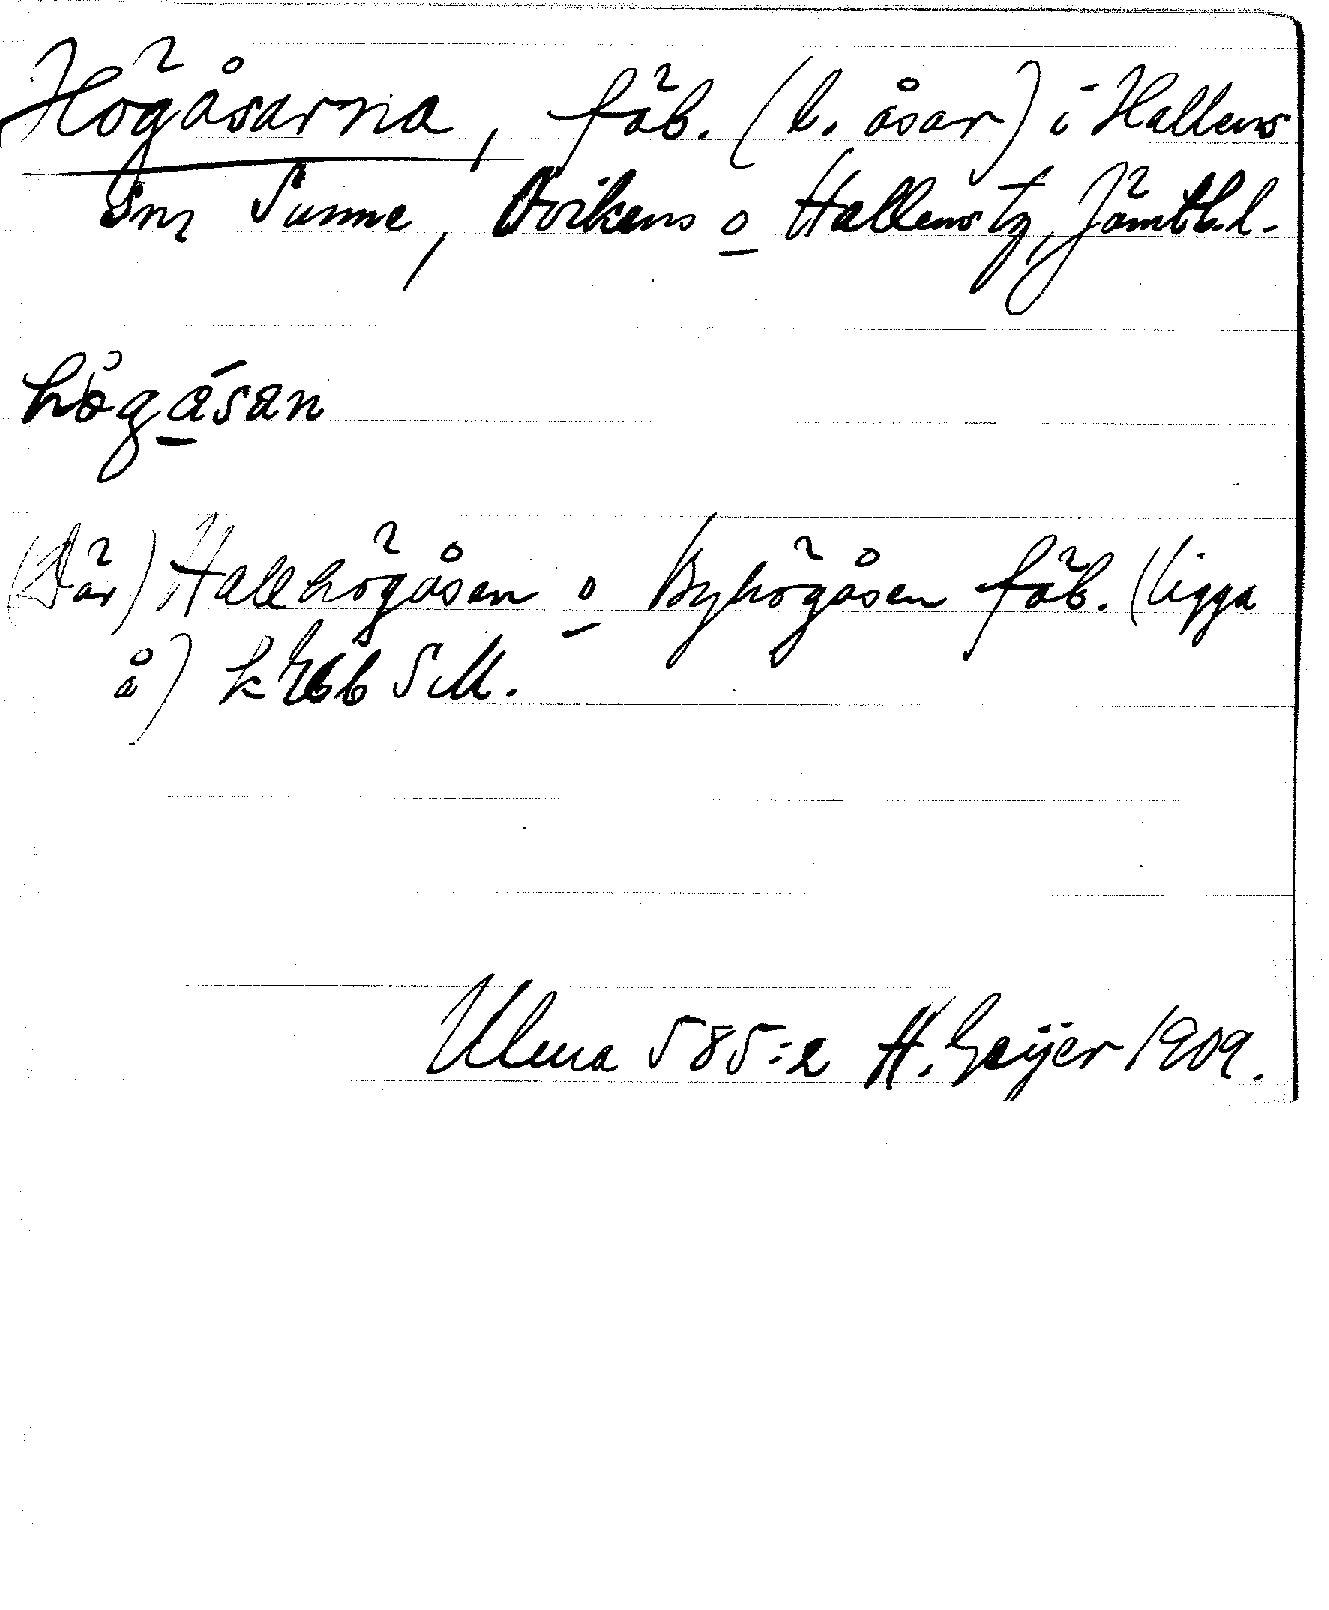 Högåsarna, fäb. (l. åsar) i Hallens
sn, Sunne, Ovikens o Hallens tg, Jämtl. l.
högásan
(Där) Hallhögåsen o Byhögåsen fäb. (ligga
å) SM.
Ulma 585:2 H. Geijer 1909.